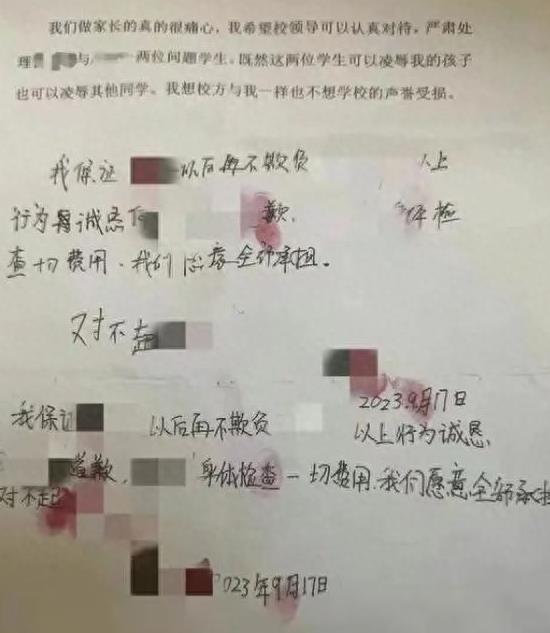 我们做家长的真的很痛心，我希望校领导可以认真对待，严肃处
理 与 两位问题学生。既然这两位学生可以凌辱我的孩子
也可以凌辱其他同学。我想校方与我一样也不想学校的声誉受损。
我保证 以后再不欺负 以上
行为 诚恳 歉. 体检
查一切费用.我们愿意全部承担。
对不起
2023.9月17日
我保证 以后再不欺负 以上行为诚恳
道歉, 身体检查一切费用.我们愿意全部承担
对不起
2023年9月17日